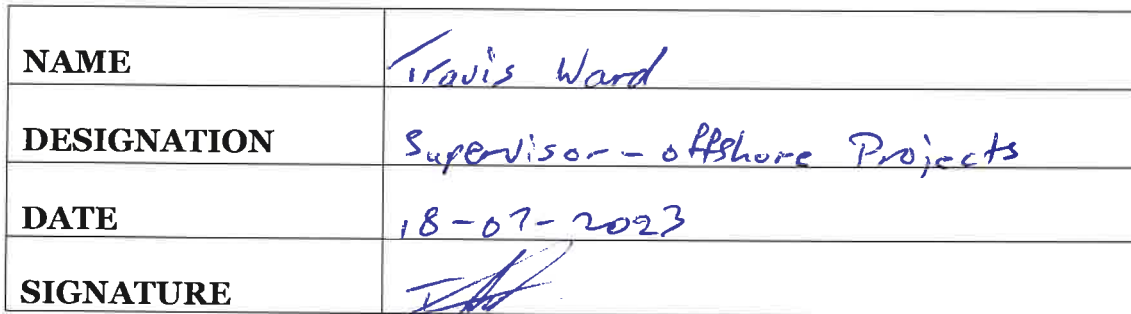 NAME Travis Ward
DESIGNATION Supervisor - offshore Projects
DATE 18-07-2023
SIGNATURE